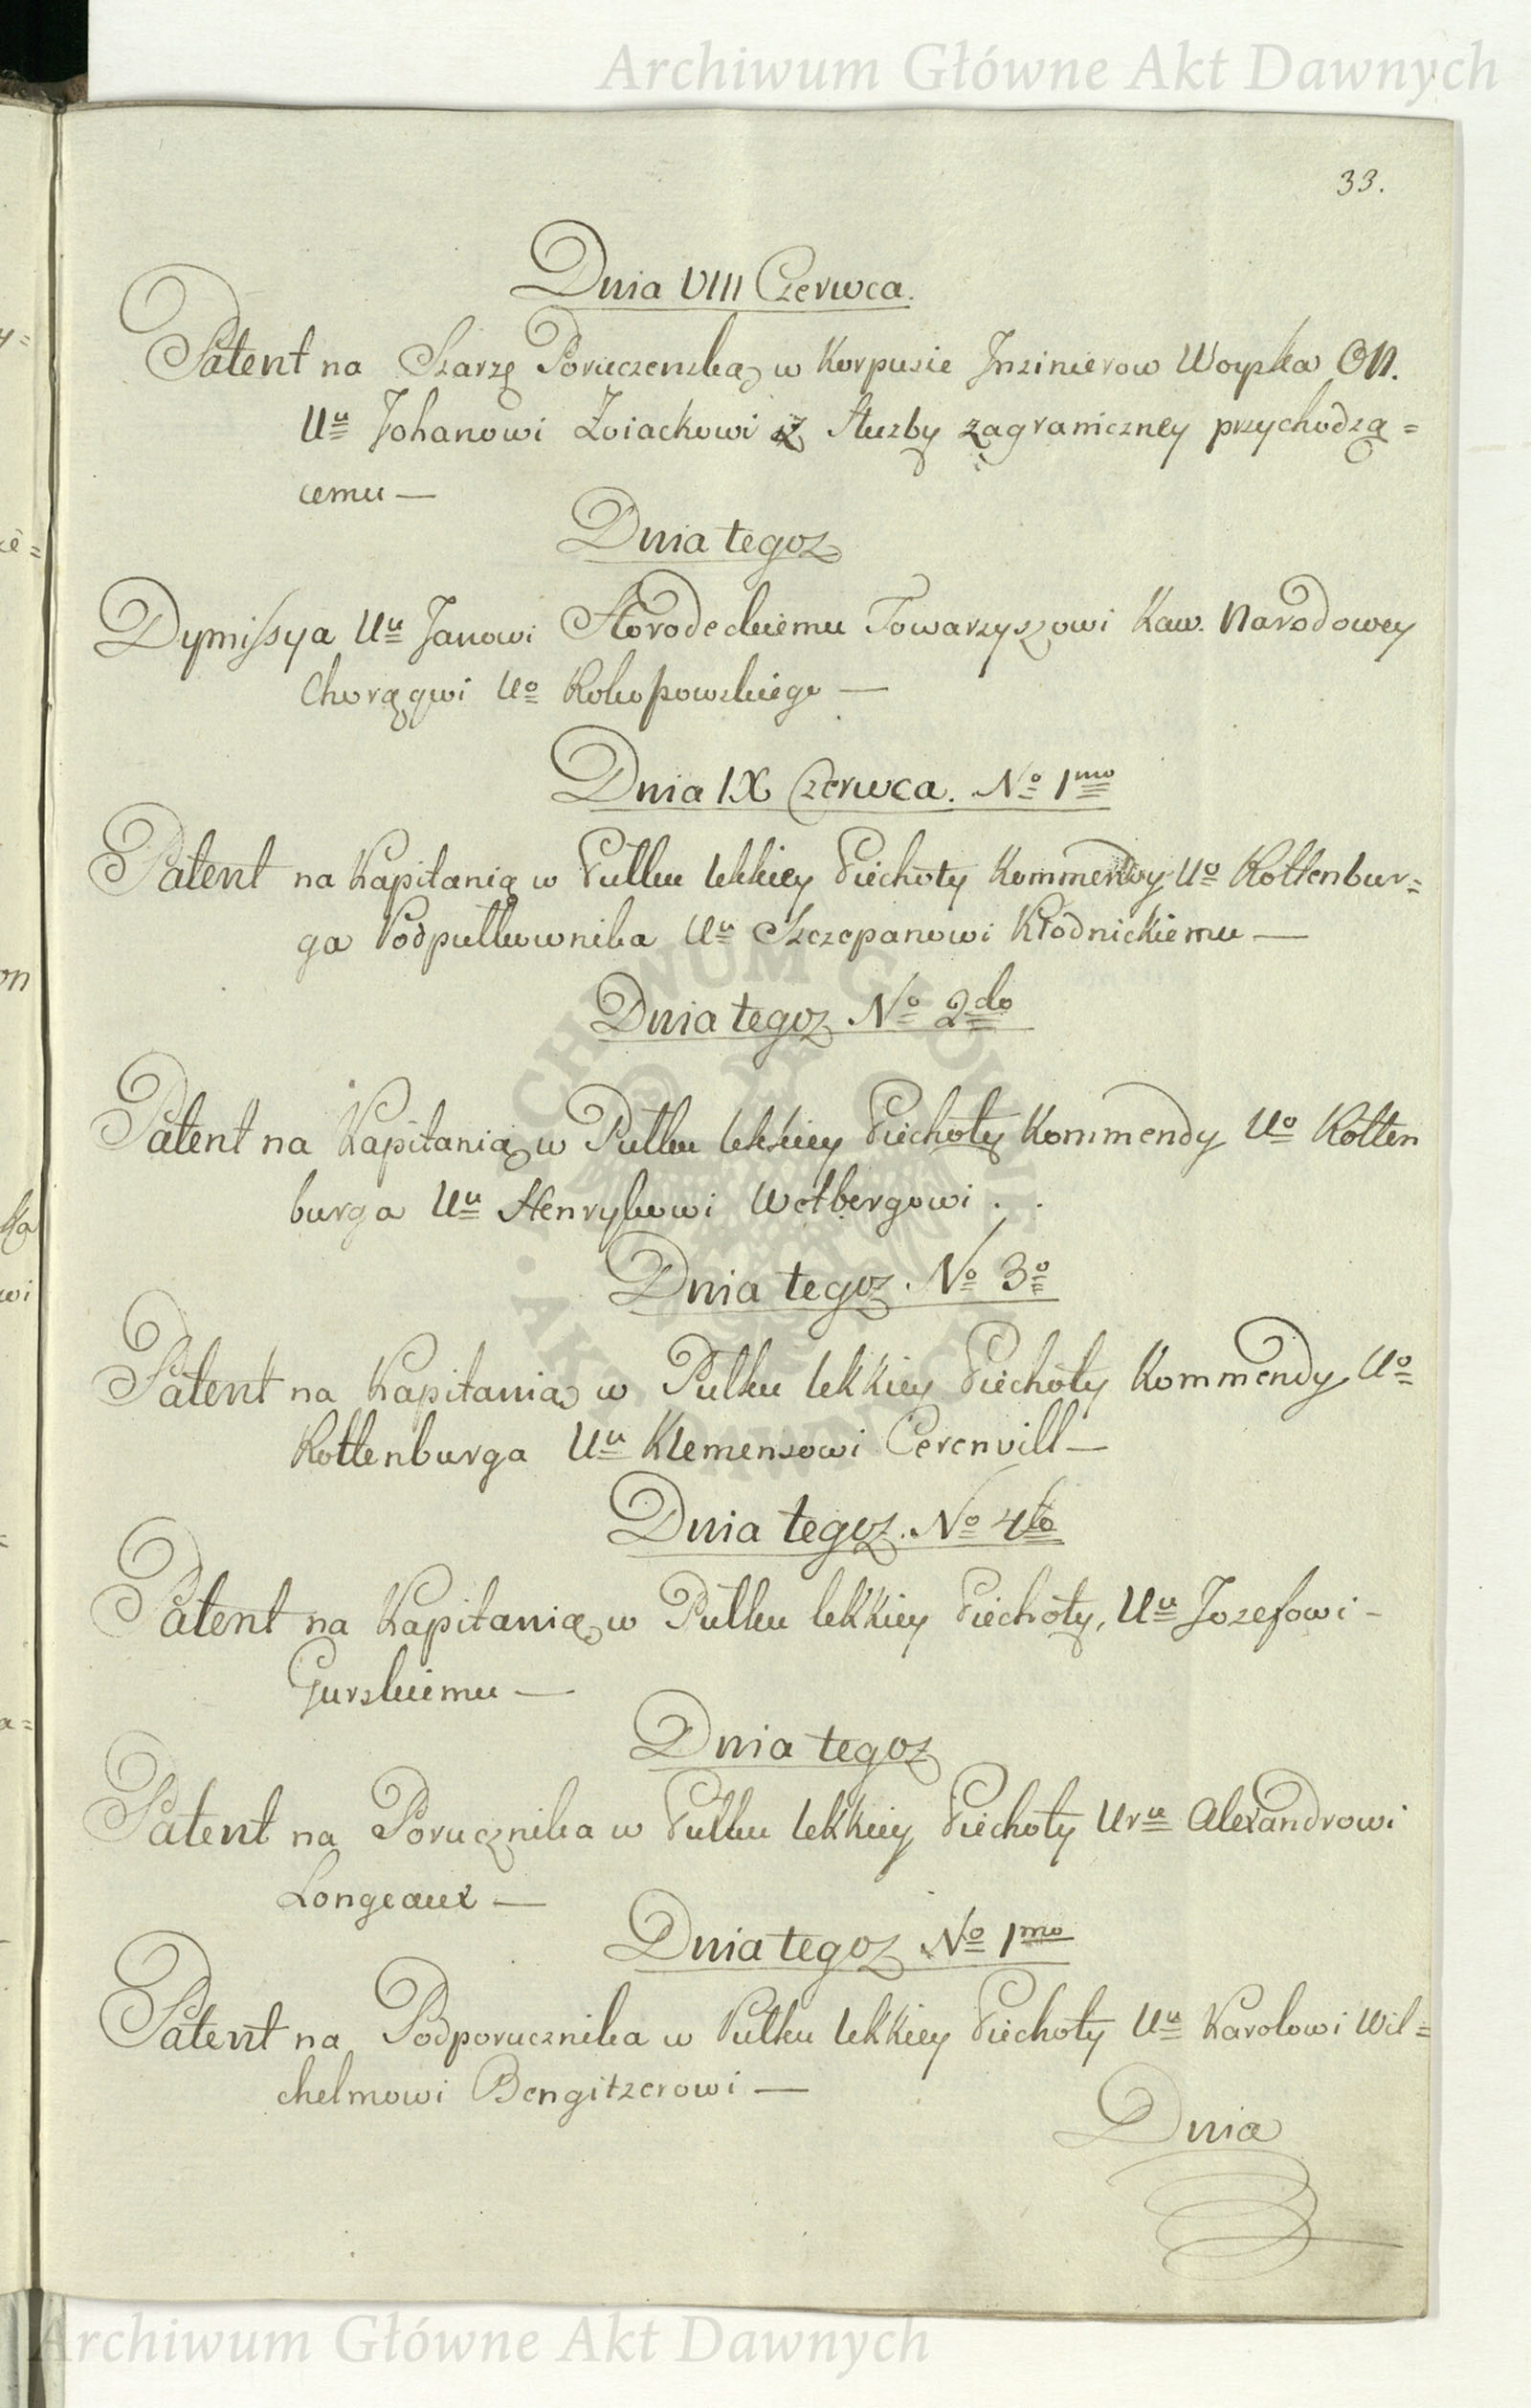 Archiwum Główne Akt Dawnych
33.
Dnia VIII Czerwca.
Patent na Szarżę Poruczenską w Korpusie Inzinierow Woyska ON.
Uu Johanowi Zoiackowi z Służby zagraniczney przychodzą=
cemu —
Dnia tegoz
Dymissya Uu Janowi Horodeckiemu Towarzyszowi Kaw. Narodowey
Chorągwi Uo Rokopowskiego —
Dnia IX Czerwca. No 1mo
Patent na Kapitanią w Pułku lekkiey Piechoty Kommendy Uo Rottenbur=
ga Podpułkownika Uu Szczepanowi Kłodnickiemu —
Dnia tegoz No 2do
Patent na Kapitanią w Pułku lekkiey Piechoty Kommendy Uo Rotten
burga Uu Henrykowi Wolbergowi . .
Dnia tegoz. No 3o
Patent na Kapitanią w Pułku lekkiey Piechoty Kommendy Uo
Rottenburga Uu Klemensowi Cerenvill —
Dnia tegoz. No 4to
Patent na Kapitanią w Pułku lekkiey Piechoty, Uu Jozefowi -
Gurskiemu —
Dnia tegoz
Patent na Porucznika w Pułku lekkiey Piechoty Uru Alexandrowi
Longeaux —
Dnia tegoz No 1mo
Patent na Podporucznika w Pułku lekkiey Piechoty Uu Karolowi Wil=
chelmowi Bengitzerowi —
Dnia
Archiwum Główne Akt Dawnych